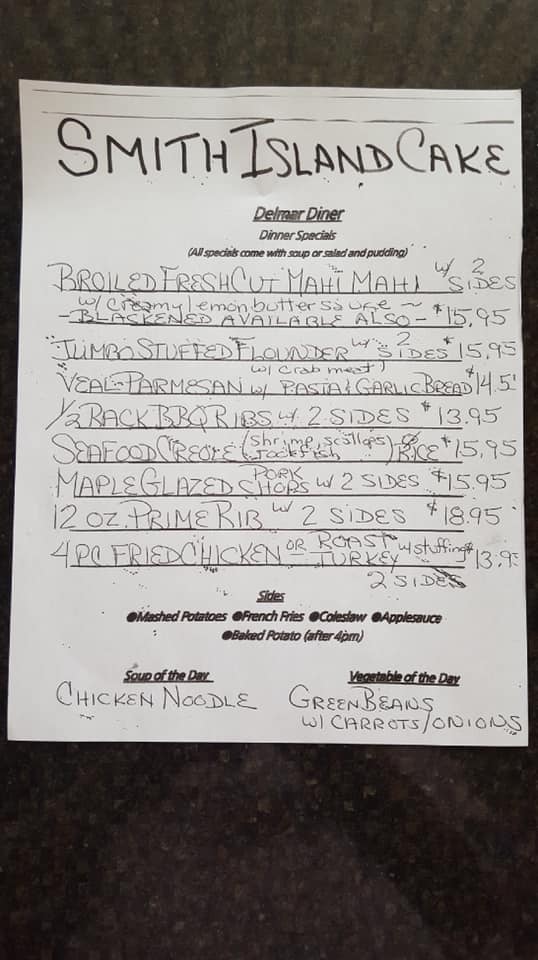 SMITH ISLAND CAKE
Delmar Diner
Dinner Specials
(All specials come with soup or salad and pudding)
BROILED FRESH CUT MAHI MAHI w/ 2 SIDES
w/ creamy lemon butter sauce ~
-BLACKENED AVAILABLE ALSO- $15.95
JUMBO STUFFED FLOUNDER w/ 2 SIDES $15.95
w/ crab meat!
VEAL PARMESAN w/ PASTA & GARLIC BREAD $14.5
1/2 RACK BBQ RIBS w/ 2 SIDES $13.95
SEAFOOD CREOLE (shrimp, scallops, rockfish) RICE $15.95
MAPLE GLAZED PORK CHOPS w/ 2 SIDES $15.95
12 OZ. PRIME RIB w/ 2 SIDES $18.95
4 PC FRIED CHICKEN OR ROAST TURKEY w/ stuffing $13.9
2 SIDES
Sides
●Mashed Potatoes ●French Fries ●Coleslaw ●Applesauce
●Baked Potato (after 4pm)
Soup of the Day
CHICKEN NOODLE
Vegetable of the Day
GREEN BEANS
W/ CARROTS/ONIONS